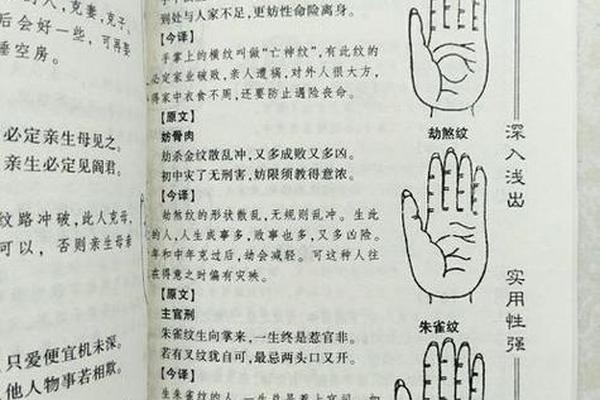 人,克妻,克子,
后会好一些,可再娶
睡空房。
必定亲生母见之。
亲生必定见阎君。
纹路冲破,此人克母,
可以,否则亲生母亲
只爱便宜机未深。
他人物事若相欺。
到处与人家不足,更妨性命险离身。
【今译】
手掌上的横纹叫做“亡神纹”,有此纹的
必定家业破败,亲人遭祸,对外人很大方,
得家中衣食不周,还要防止遇险丧命。
【原文】
妨骨肉
劫杀金纹散乱冲,又多成败又多凶。
初中灾了无刑害,妨限须教得意浓。
【今译】
劫煞纹的形状散乱,无规则乱冲。生此
的人,人生成事多,败事也多,又多凶险。
年和中年克过后,劫会减轻。可这种人往
在得意之时偏有灾殃。
【原文】
主官刑
朱雀纹生向掌来,一生终是惹官非。
若有叉纹犹自可,最忌两头口又开。
【今译】
生朱雀纹的人,一生总是惹上官司,如
劫煞纹
朱雀纹
深入浅出
实用性强